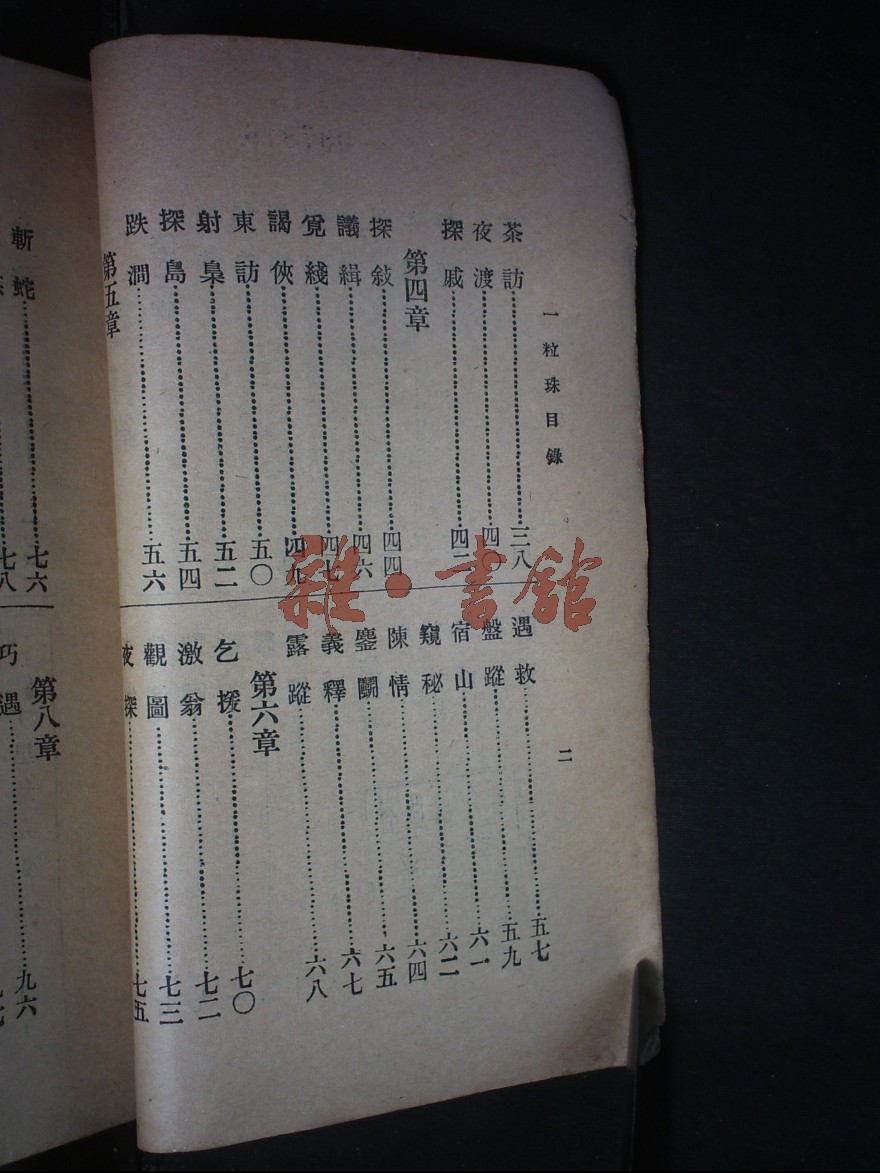 一粒珠目錄
二
茶訪……三八
夜渡……四〇
探戚……四二
第四章
探敍……四四
議緝……四六
覓綫……四七
謁俠……四九
東訪……五〇
射梟……五二
探島……五四
跌澗……五六
第五章
遇救……五七
盤蹤……五九
宿山……六一
窺秘……六二
陳情……六四
鏖鬭……六五
義釋……六七
露蹤……六八
第六章
乞援……七〇
激翁……七二
觀圖……七三
夜探……七五
斬蛇……七六
七八
第八章
巧遇……九六
雜·書館